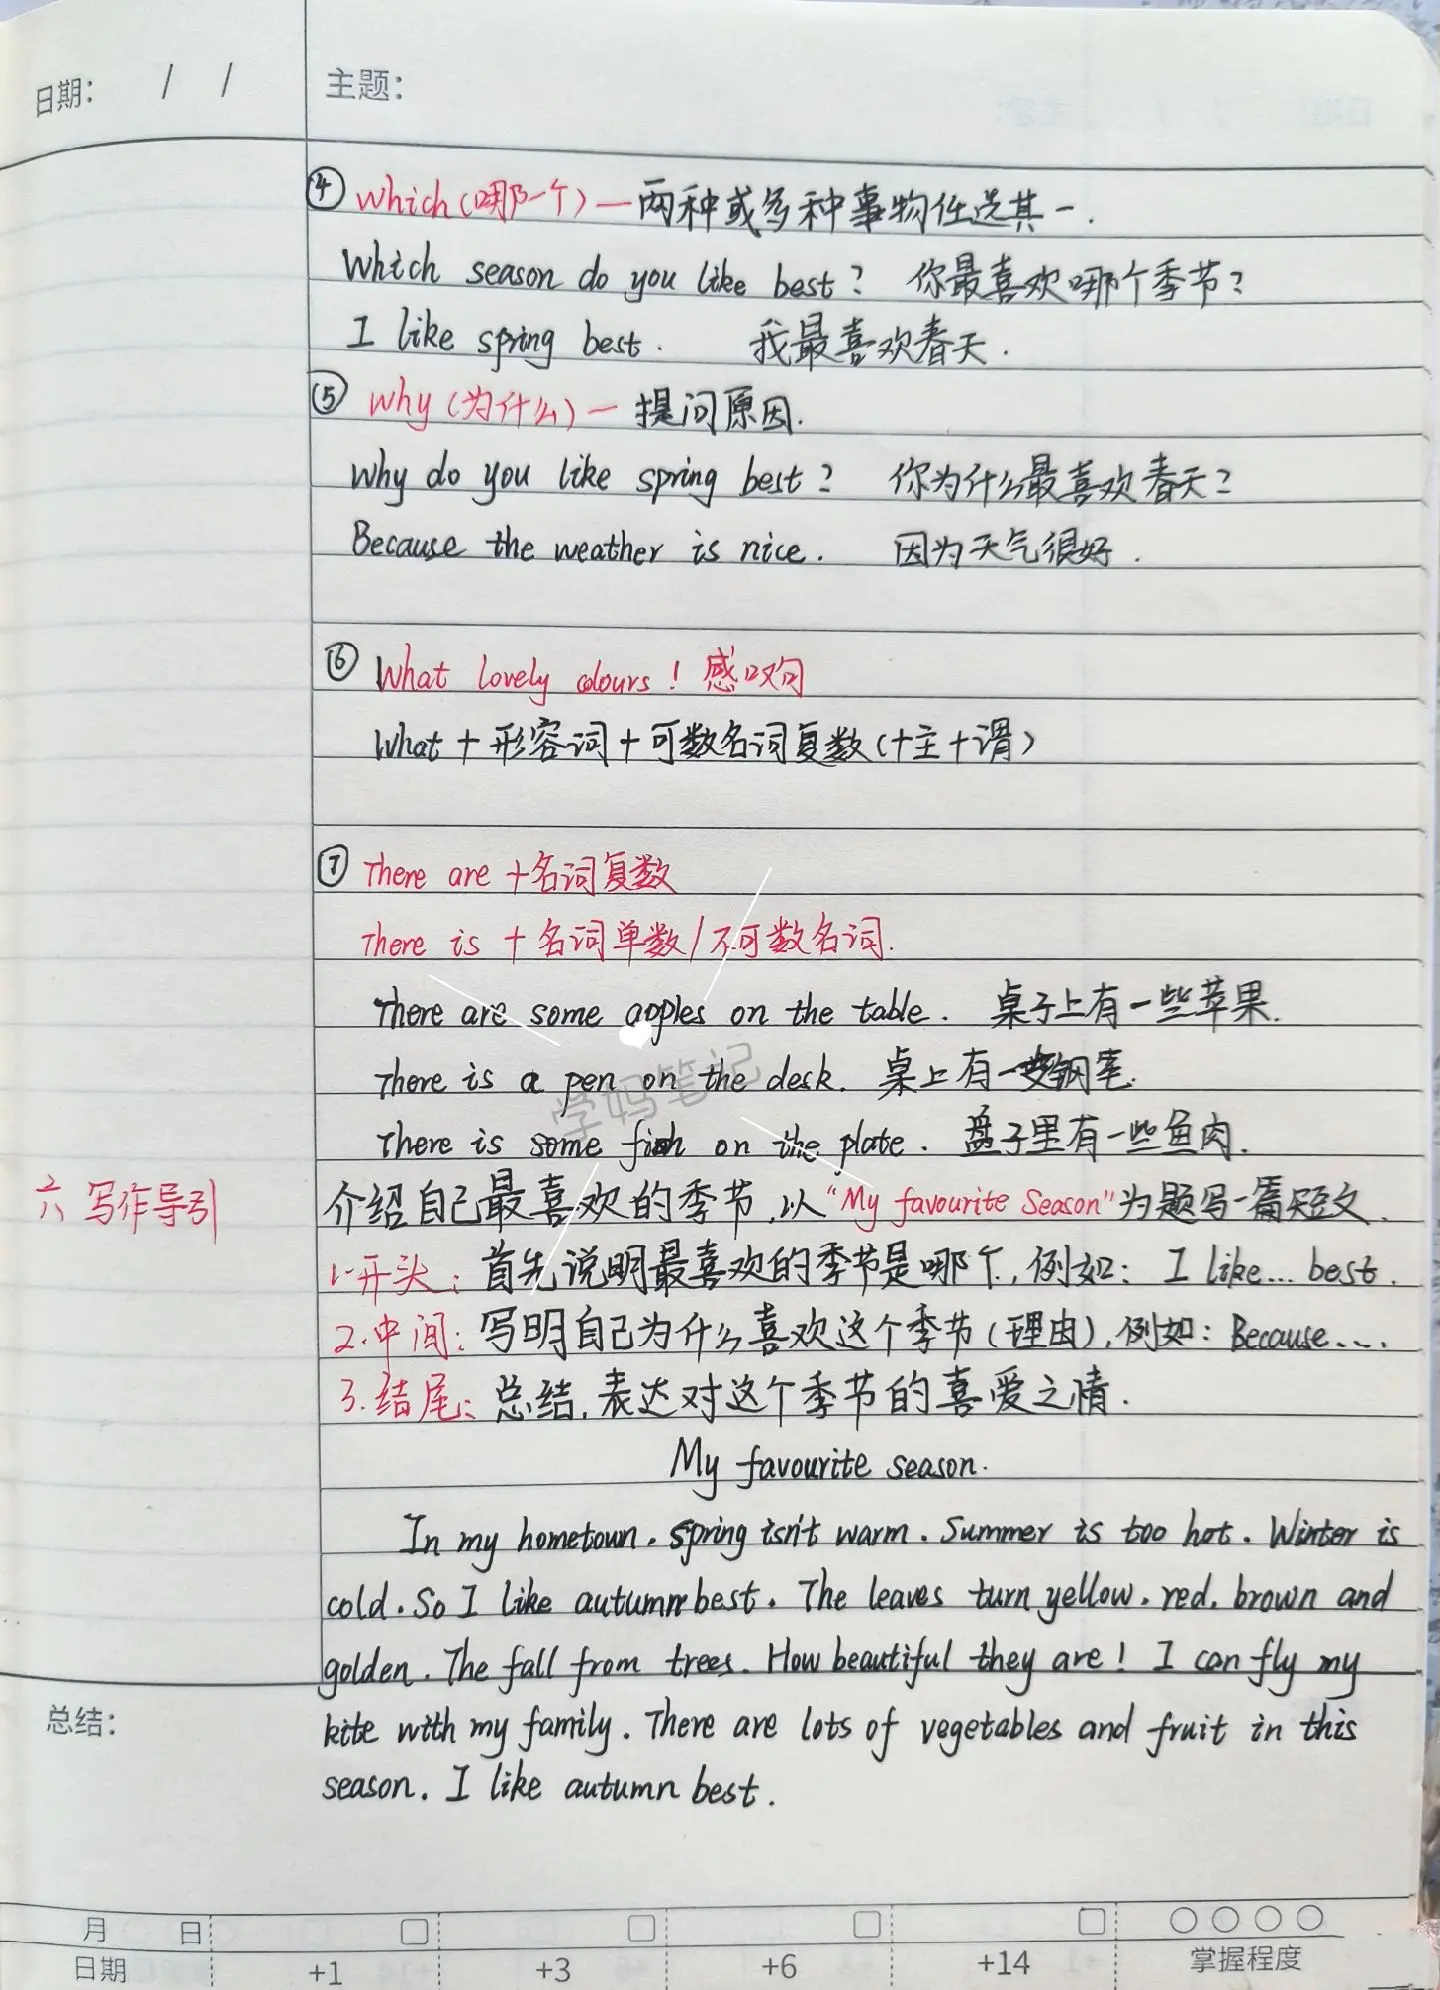 日期: / /
主题:
④ Which(哪一个)—两种或多种事物任选其一.
Which season do you like best? 你最喜欢哪个季节?
I like spring best. 我最喜欢春天.
⑤ Why(为什么)—提问原因.
Why do you like spring best? 你为什么最喜欢春天?
Because the weather is nice. 因为天气很好.
⑥ What lovely colours! 感叹句
What+形容词+可数名词复数(+主+谓)
⑦ There are+名词复数
There is+名词单数/不可数名词.
There are some apples on the table. 桌子上有一些苹果.
There is a pen on the desk. 桌上有一支钢笔.
There is some fish on the plate. 盘子里有一些鱼肉.
学妈笔记
六、写作导引
介绍自己最喜欢的季节,以"My favourite Season"为题写一篇短文.
1.开头:首先说明最喜欢的季节是哪个,例如: I like... best.
2.中间:写明自己为什么喜欢这个季节(理由),例如: Because....
3.结尾:总结,表达对这个季节的喜爱之情.
My favourite season.
In my hometown. spring isn't warm. Summer is too hot. Winter is
cold. So I like autumn best. The leaves turn yellow. red. brown and
golden. The fall from trees. How beautiful they are! I can fly my
kite with my family. There are lots of vegetables and fruit in this
season. I like autumn best.
总结:
月 日
日期 +1 +3 +6 +14 掌握程度